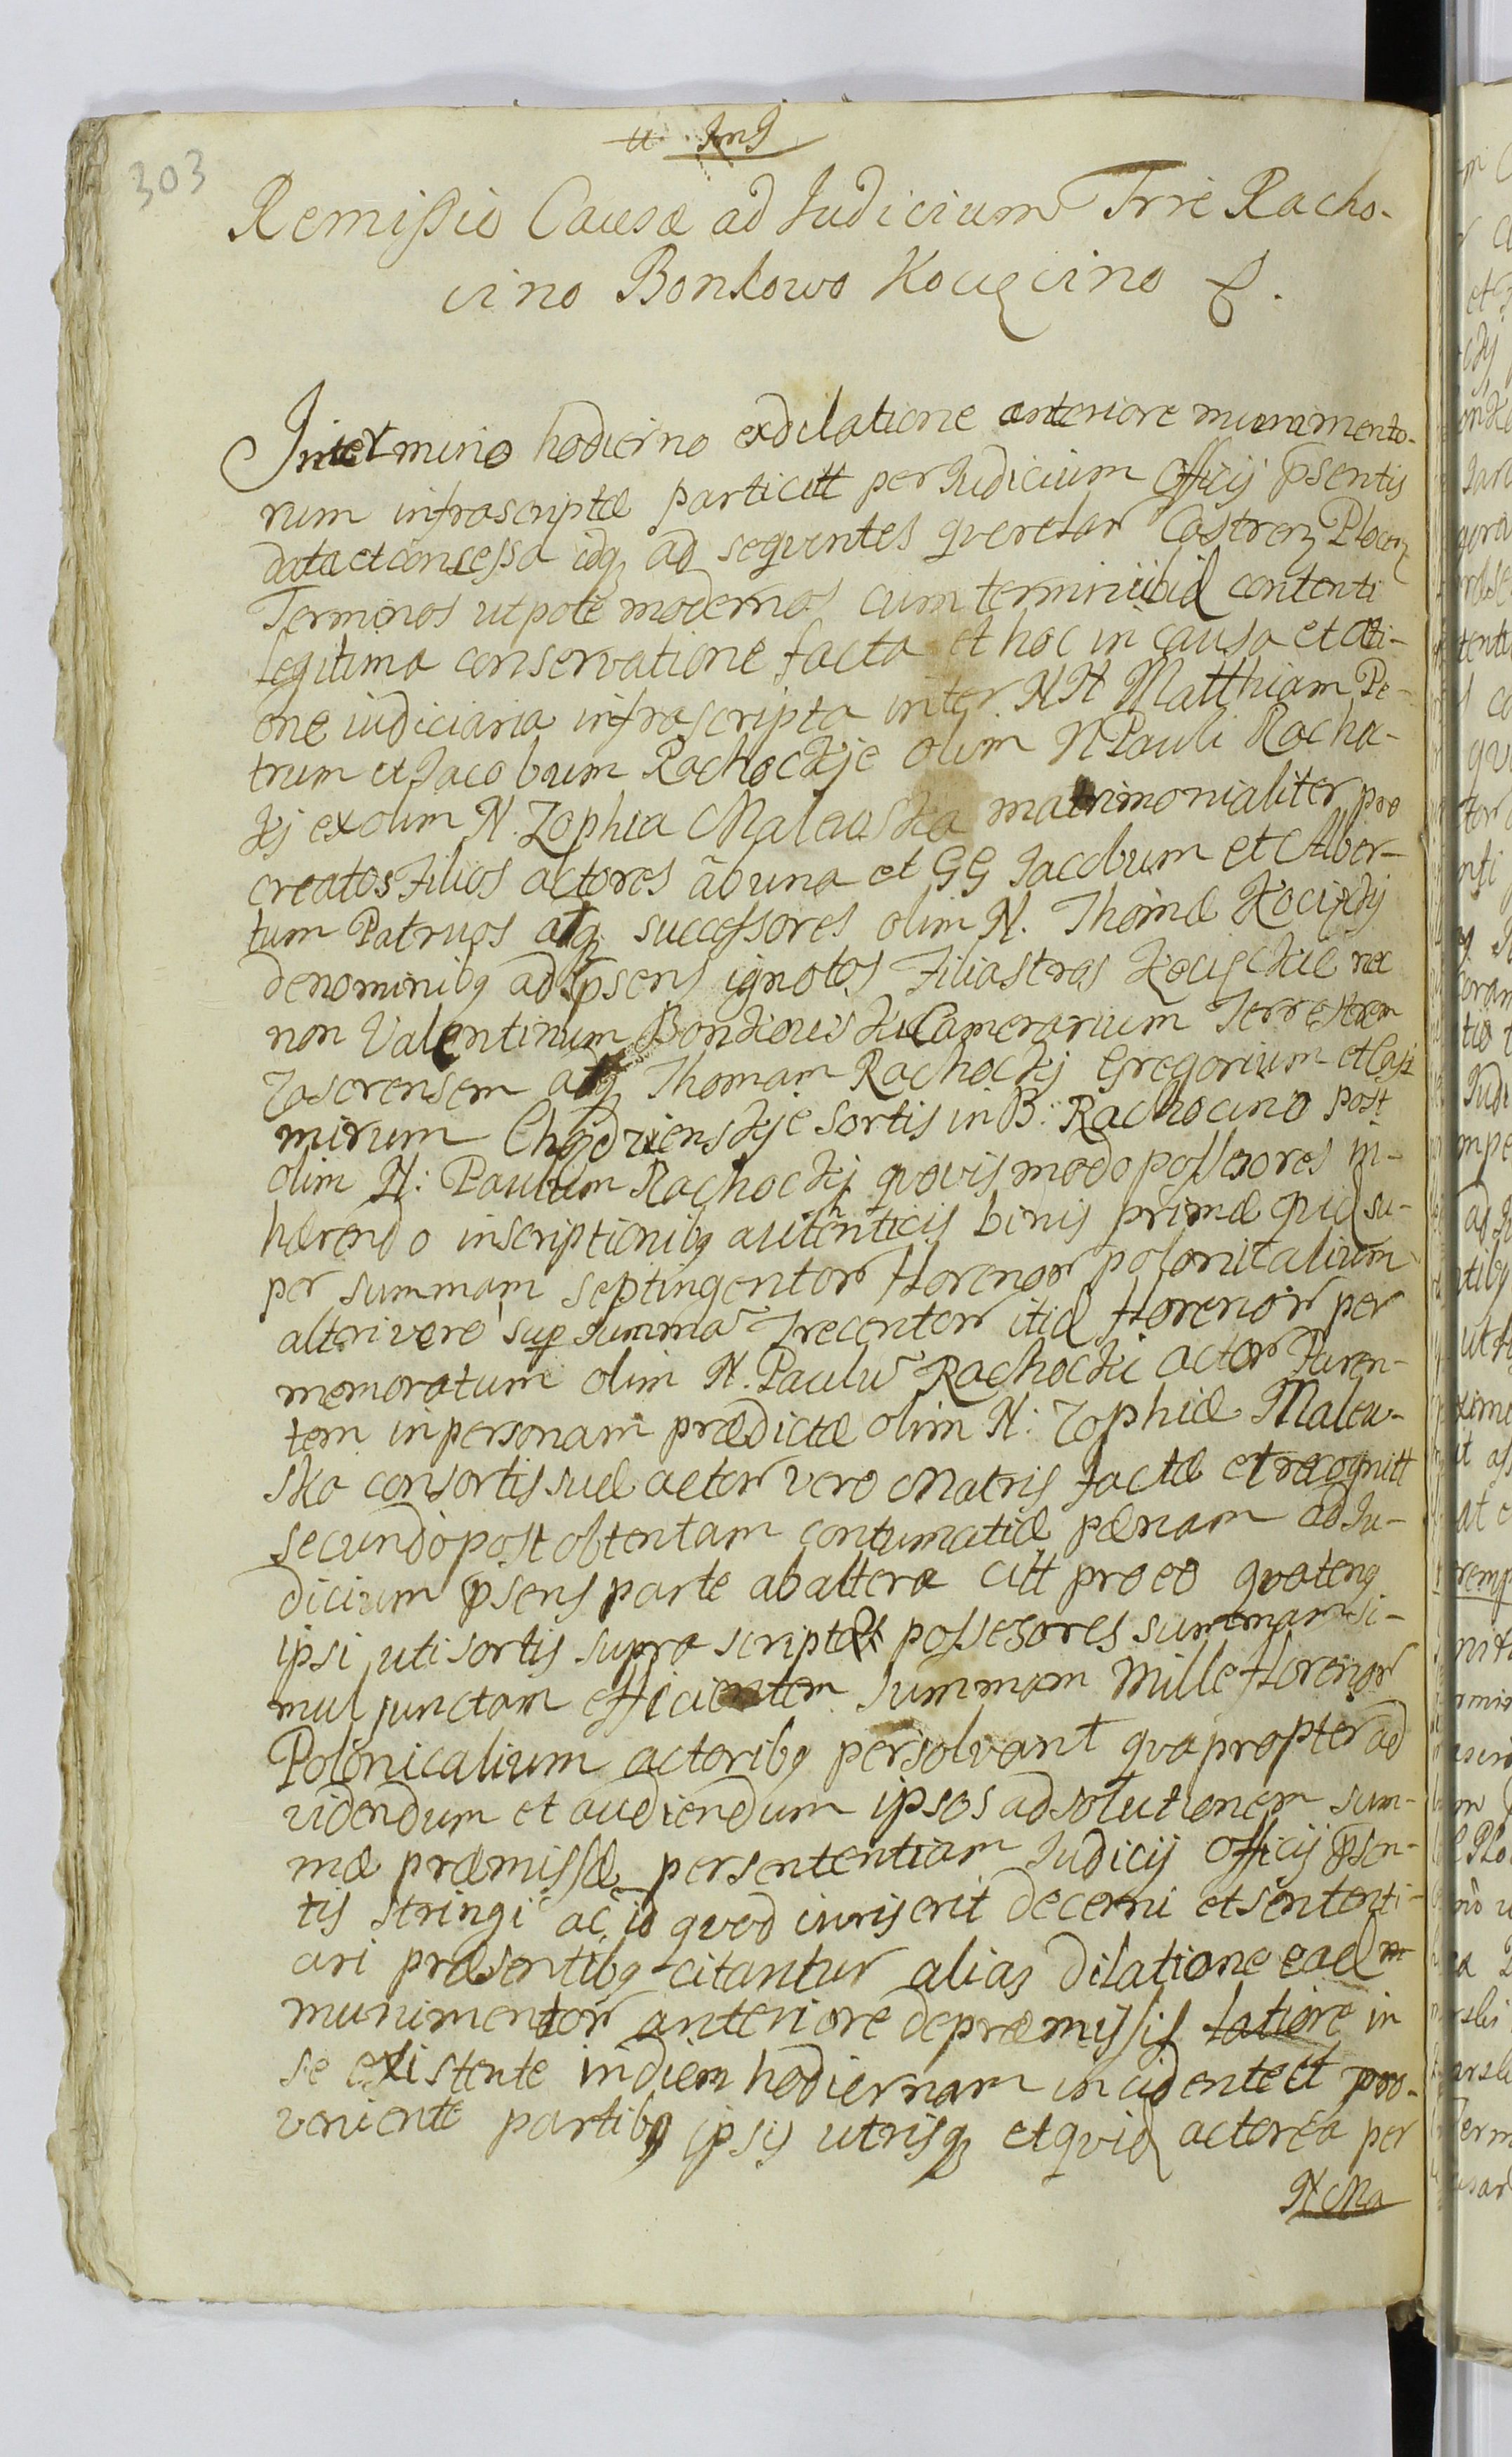 303
Remissio Causæ ad Judicium Trre Racho-
cino Bonkowo Kocięcino &.
Intermino hodierno exdilatione anteriore munimento-
rum infrascriptæ particitt per Judicium Officij p̄sentis
data et concessa idq ad seqventes qverelar Castren Plocen
Terminos utpote modernos cum termini ibid contenti
legitima conservatione facta et hoc in causa et acti-
one iudiciaria infrascripta inter NN Matthiam Pe-
trum et Jacobum Rachockje olim N Pauli Racho-
kj exolim N. Zophia Malewska matrimonialiter pro
creatos Filios actores ab una et GG Jacobum et Alber-
tum Patruos atq successores olim N. Thomæ Kocięckj
denominibq ad p̄sens ignotos Filiastros Kocięckie nec
non Valentinum Bonkowski Camerarium Terrestrem
Zascrensem atq Thomam Rachockj Gregorium et Casi
mirum Chodzienskje sortis in B: Rachocino post
olim N: Paulum Rachockj qvovis modo possessores in-
hærendo inscriptionibq autenticis binis primæ qvid su-
per summam septingentor florenor polonicalium
alteri vero sup summa Trecentor itid florenor per
memoratum olim N. Paulu Rachocki actor Paren-
tem in personam prædictæ olim N: Zophiæ Malew-
ska consortis suæ actor vero Matris factæ et recognitt
secundo post obtentam contumatiæ pænam ad Ju-
dicium p̄sens parte ab altera citt pro eo qvatenq
ipsi uti sortis supra scriptæ possesores summam si-
mul junctam efficientem summam Mille florenor
Polonicalium actoribq persolvant qvapropter ad
videndum et audiendum ipsos ad solutionem sum-
mæ præmissæ per sententiam Judicij Officij p̄sen-
tis stringi ac id qvod iuris erit decerni et sententi-
ari præsentibq citantur alias dilatione eadm
munimentor anteriore de præmissis latiore in
se existente in diem hodiernam incidente et pro-
veniente partibq ipsis utrisq et qvid actorea per